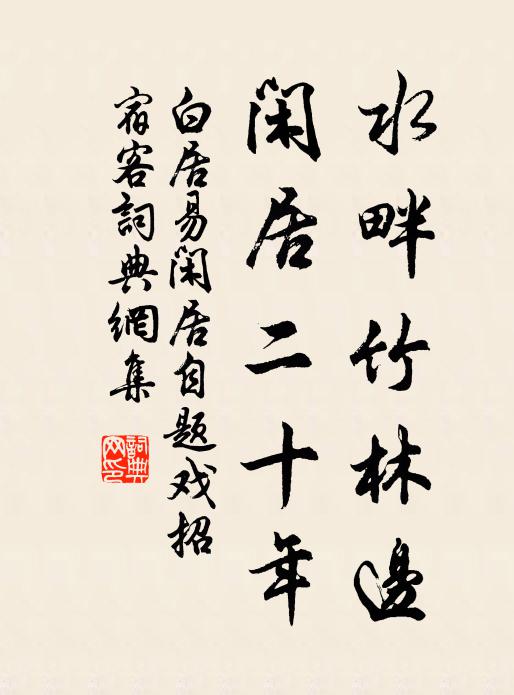 水畔竹林邊
閑居二十年
白居易閑居自題戏招
宿客詞典網集
詞典网印